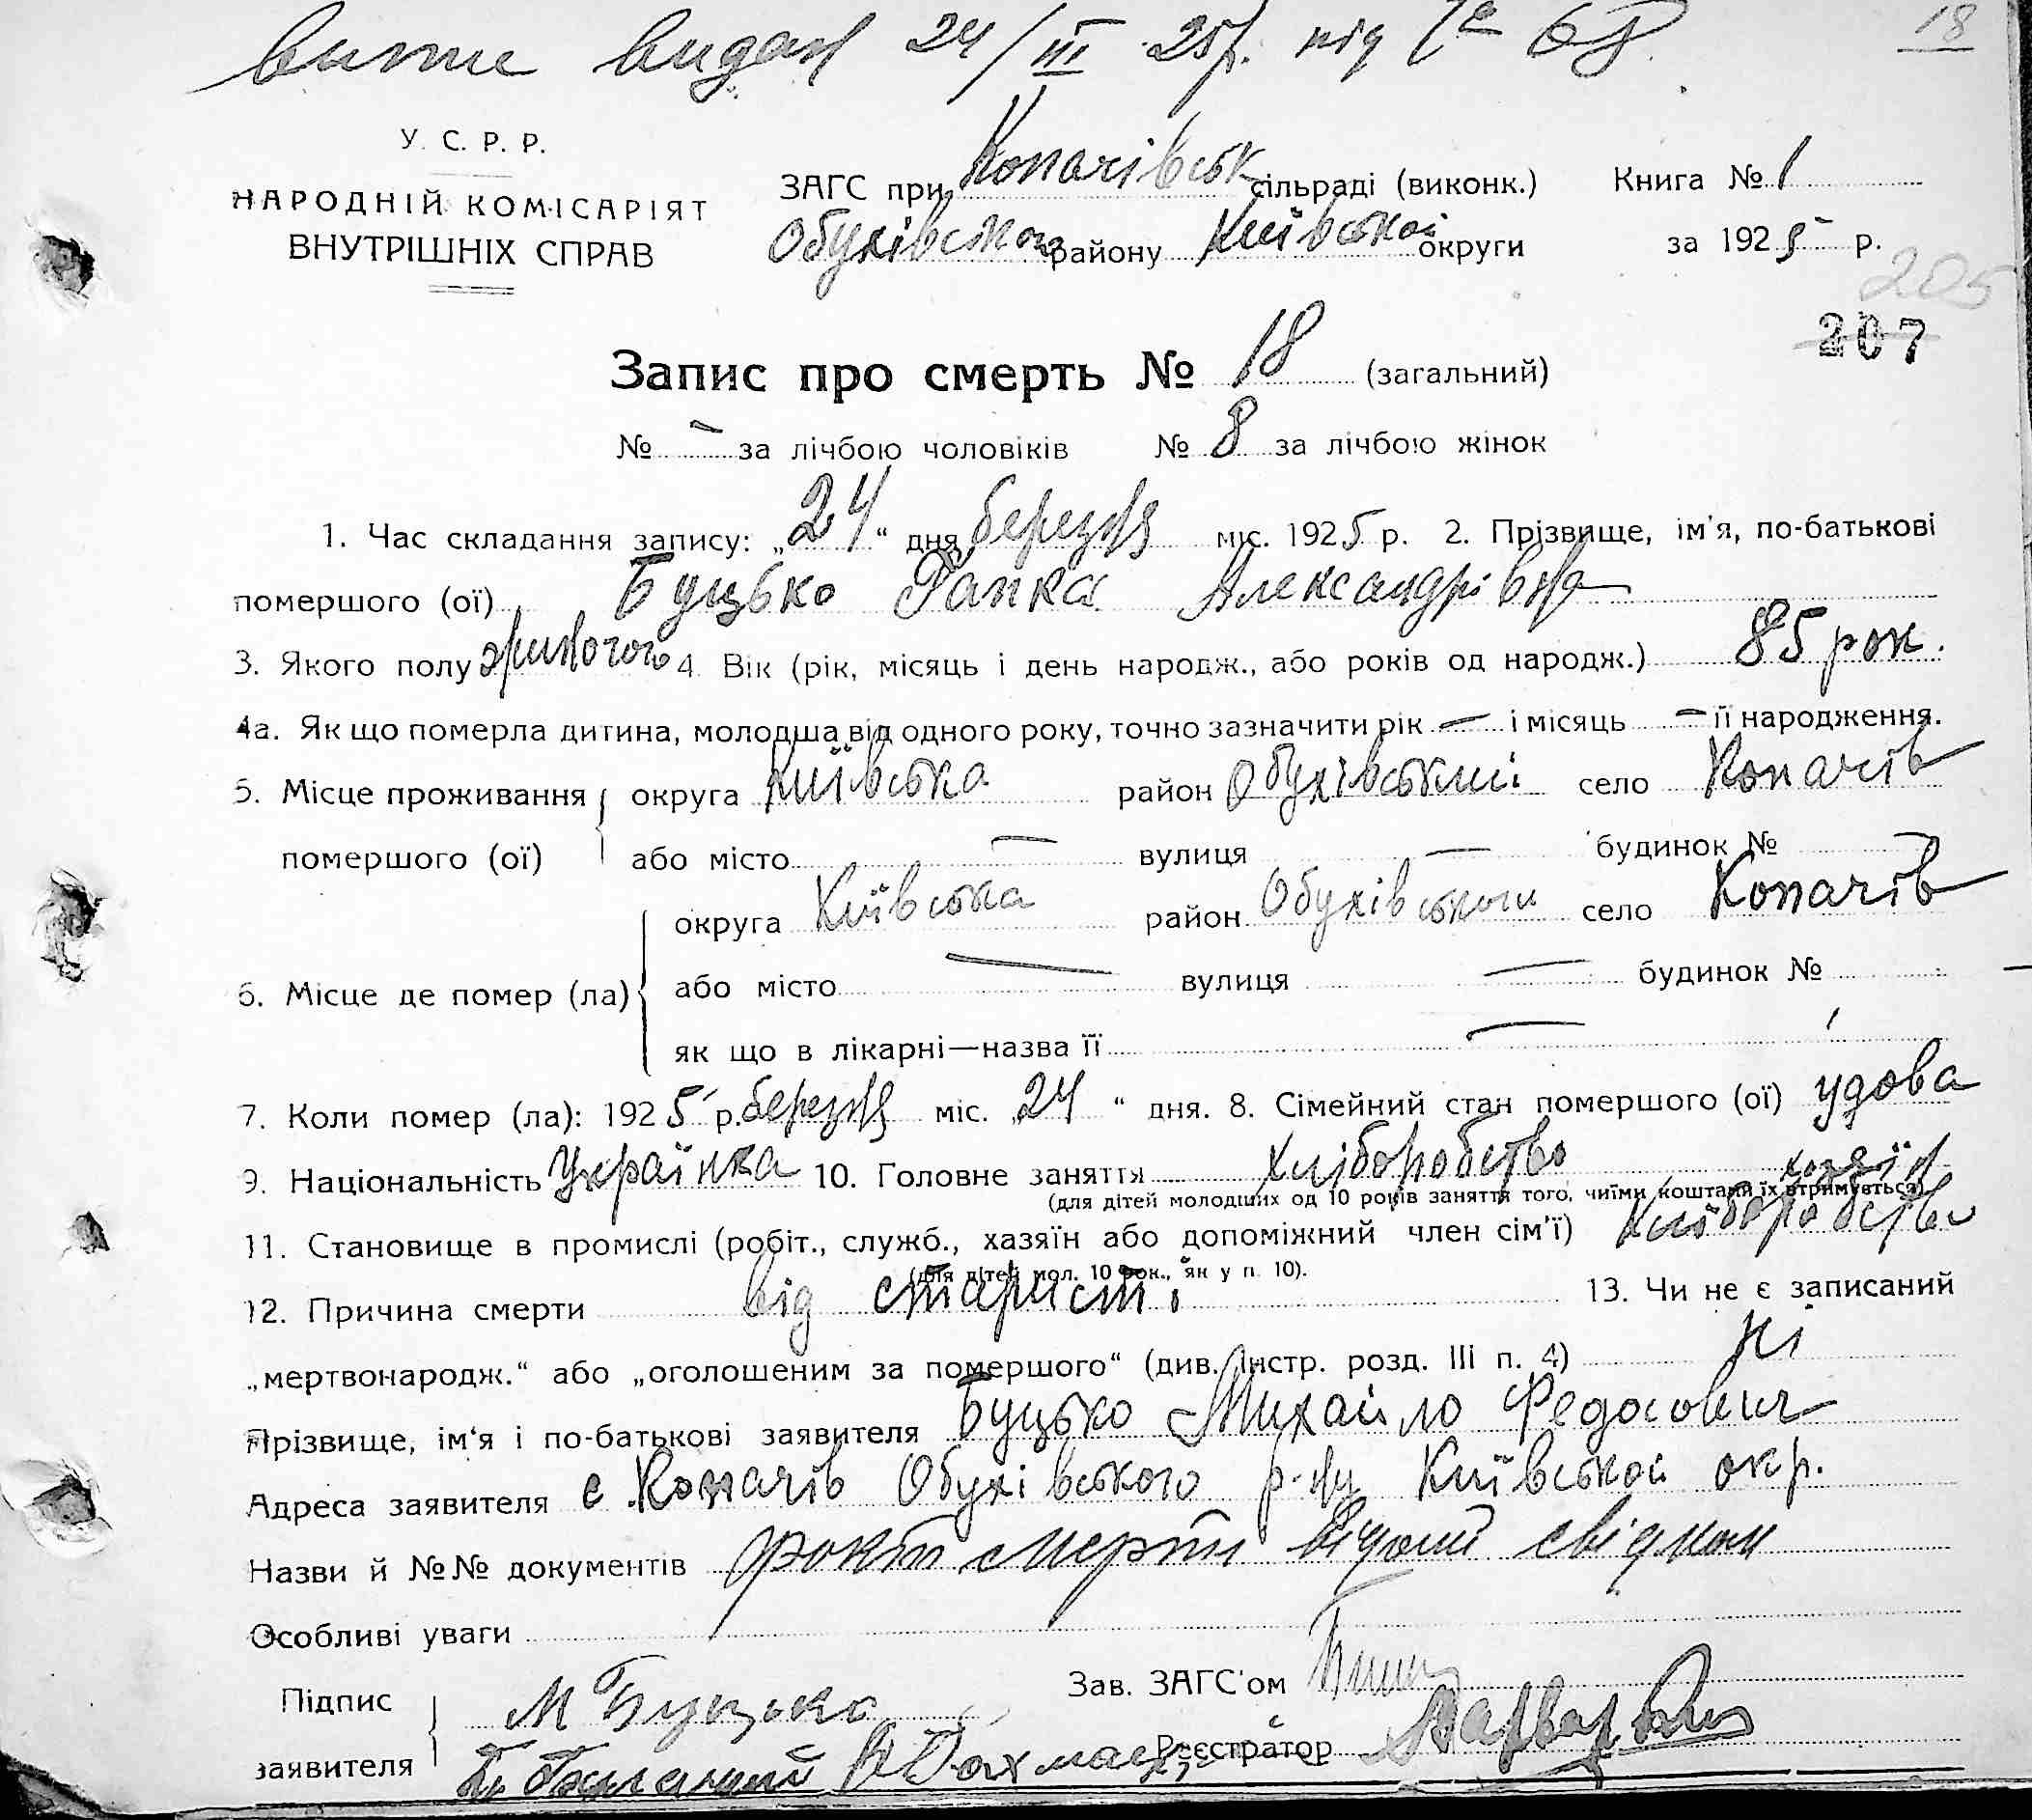 витяг видан 24/III 25р. під № 68
18
У. С. Р. Р.
НАРОДНІЙ КОМІСАРІЯТ
ВНУТРІШНІХ СПРАВ
ЗАГС при Копачівськ сільраді (виконк.) Книга № 1
Обухівського району Київськой округи за 1925 р.
205
207
Запис про смерть № 18 (загальний)
№ — за лічбою чоловіків № 8 за лічбою жінок
1. Час складання запису: „24“ дня березня міс. 1925 р. 2. Прізвище, ім'я, по-батькові
помершого (ої) Буцько Гапка Александрівна
3. Якого полу жиночого 4. Вік (рік, місяць і день народж., або років од народж.) 85 рок.
4а. Як що померла дитина, молодша від одного року, точно зазначити рік — і місяць — її народження.
5. Місце проживання округа Київська район Обухівський село Копачів
помершого (ої) або місто — вулиця — будинок № —
округа Київська район Обухівського село Копачів
6. Місце де помер (ла) або місто — вулиця — будинок №
як що в лікарні—назва її —
7. Коли помер (ла): 1925 р. березня міс. „24“ дня. 8. Сімейний стан помершого (ої) удова
9. Національність Українка 10. Головне заняття хліборобство
(для дітей молодших од 10 років заняття того, чиїми коштами їх втримується) хазяїн
11. Становище в промислі (робіт., служб., хазяїн або допоміжний член сім'ї) хліборобство
(для дітей мол. 10 рок., як у п. 10).
12. Причина смерти від старисті 13. Чи не є записаний
„мертвонародж.“ або „оголошеним за помершого“ (див. Інстр. розд. III п. 4) ні
Прізвище, ім'я і по-батькові заявителя Буцько Михайло Федосович
Адреса заявителя с Копачів Обухівського р-ну Київськой окр.
Назви й №№ документів факт смерти відомий свідкам
Особливі уваги
Підпис М Буцько Зав. ЗАГС'ом
заявителя Реєстратор